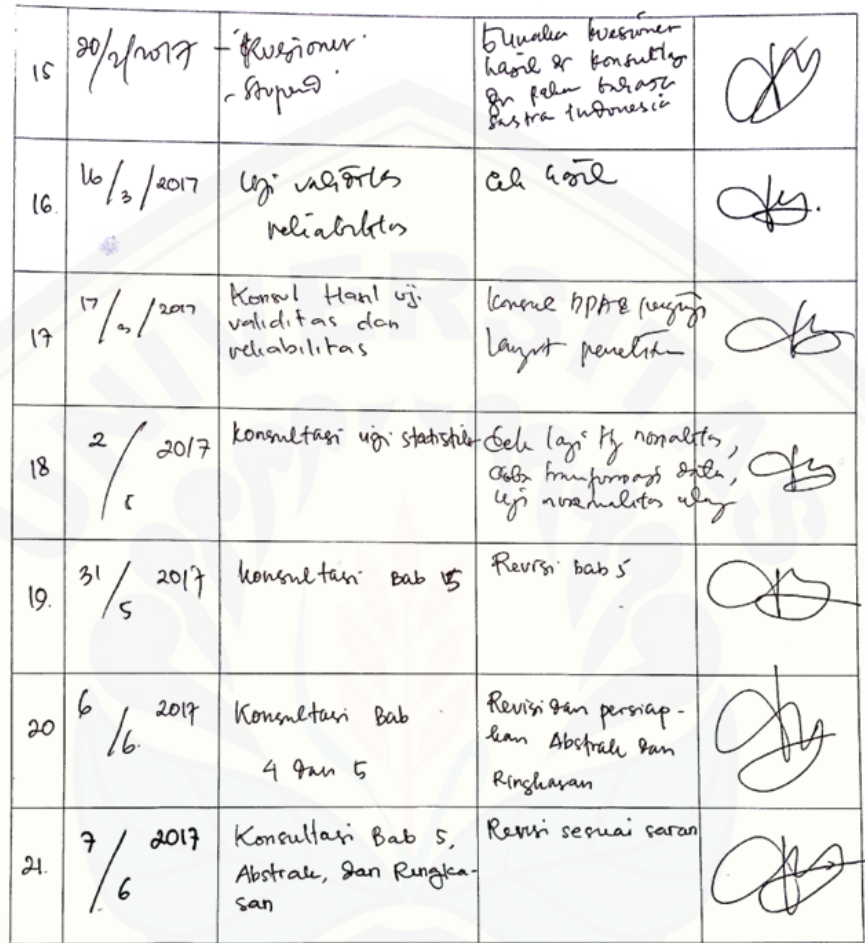 15
20/2/2017
- Kuesioner
- Stupend
kuesioner
hasil & konsultasi
bahasa
sastra Indonesia
16.
16/3/2017
Uji validitas
reliabilitas
Cek hasil
17
17/3/2017
Konsul Hasil uji
validitas dan
reliabilitas
Konsul
Lanjut penelitian
18
2/5 2017
Konsultasi uji statistik
Cek lagi normalitas,
coba transformasi data,
uji normalitas ulang
19.
31/5 2017
Konsultasi Bab 5
Revisi bab 5
20
6/6. 2017
Konsultasi Bab
4 dan 5
Revisi dan persiap-
kan Abstrak dan
Ringkasan
21.
7/6 2017
Konsultasi Bab 5,
Abstrak, dan Ringka-
san
Revisi sesuai saran
UNIVERSITAS